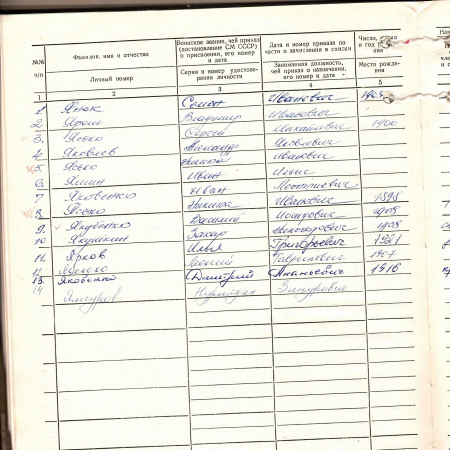 №№ п/п
Фамилия, имя и отчество
Личный номер
Воинское звание, чей приказ (постановление СМ СССР) о присвоении, его номер и дата
Серия и номер удостоверения личности
Дата и номер приказа по части о зачислении в списки
Занимаемая должность, чей приказ о назначении, его номер и дата
Место рожде-
1 2 3 4 5
1. Янюк Семен Иванович
2 Владимир Иванович
3. Ясько Сергей Михайлович 1900
4 Яковлев Александр Яковлевич
5. Ясько Никита Иванович
6 Яшин Иван Ильич
7 Яковенко Иван Леонтиевич
8. Ясько Никита Иванович 1898
9. Якубенко Василий 1905
10 Якушкин Захар Никифорович 1905
11. Ярков Илья Григорьевич 1921
12 Гаврилович 1907
13. Яковенко Дмитрий Ананьевич 1916
14